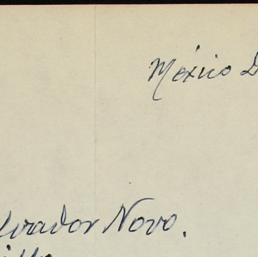 México D
lvador Novo.